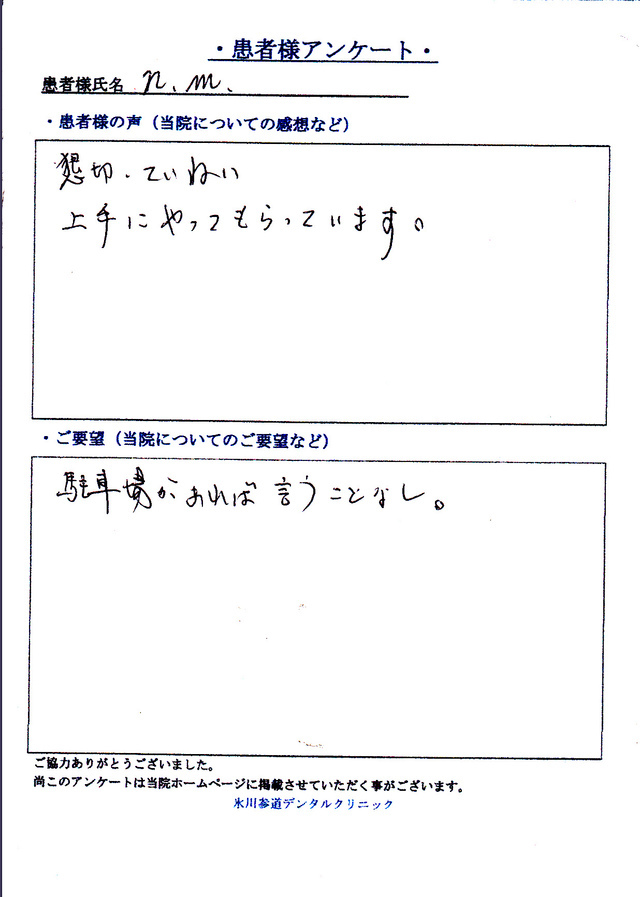 ・患者様アンケート・
患者様氏名 n.m.
・患者様の声（当院についての感想など）
懇切・ていねい
上手にやってもらっています。
・ご要望（当院についてのご要望など）
駐車場があれば言うことなし。
ご協力ありがとうございました。
尚このアンケートは当院ホームページに掲載させていただく事がございます。
氷川参道デンタルクリニック